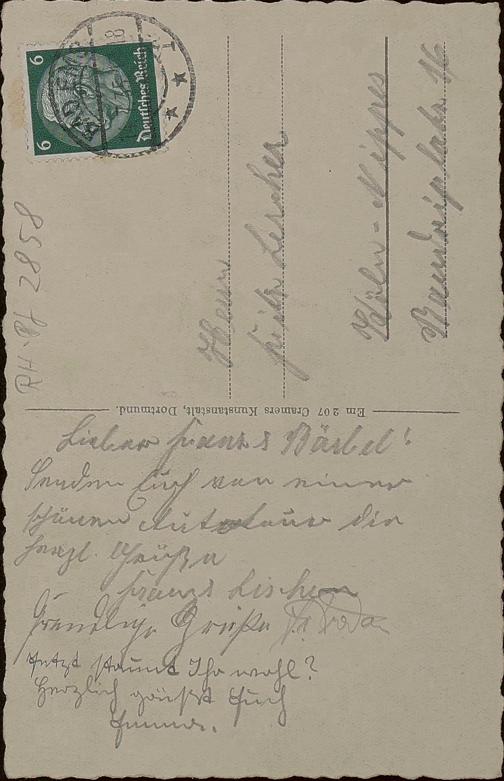 6
6
Deutsches Reich
BAD EMS
RH-Pf 2858
Herrn
Fritz Lescher
Köln-Nippes
16
Em 207 Cramers Kunstanstalt, Dortmund.
Lieber Franz & Bärbel!
Senden Euch von einer
schönen Autotour die
herzl. Grüße
Franz &
Freundliche Grüße
Jetzt staunt Ihr wohl?
Herzlich grüßt Euch